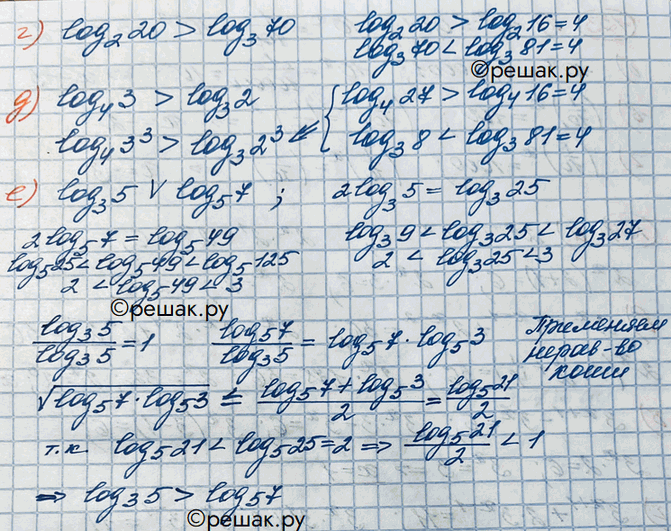 г) log₂20 > log₃70 log₂20 > log₂16 = 4
log₃70 < log₃81 = 4
©решак.ру
д) log₄3 > log₃2 log₄27 > log₄16 = 4
log₄3³ > log₃2³ ⇐ { log₃8 < log₃81 = 4
е) log₃5 ∨ log₅7 ; 2log₃5 = log₃25
2log₅7 = log₅49 log₃9 < log₃25 < log₃27
log₅25 < log₅49 < log₅125 2 < log₃25 < 3
2 < log₅49 < 3
©решак.ру
log₃5/log₃5 = 1 log₅7/log₃5 = log₅7 · log₅3 Применяем
нерав-во
коши
√(log₅7 · log₅3) ≤ (log₅7 + log₅3)/2 = log₅21/2
т.к log₅21 < log₅25 = 2 ⇒ log₅21/2 < 1
⇒ log₃5 > log₅7
©решак.ру